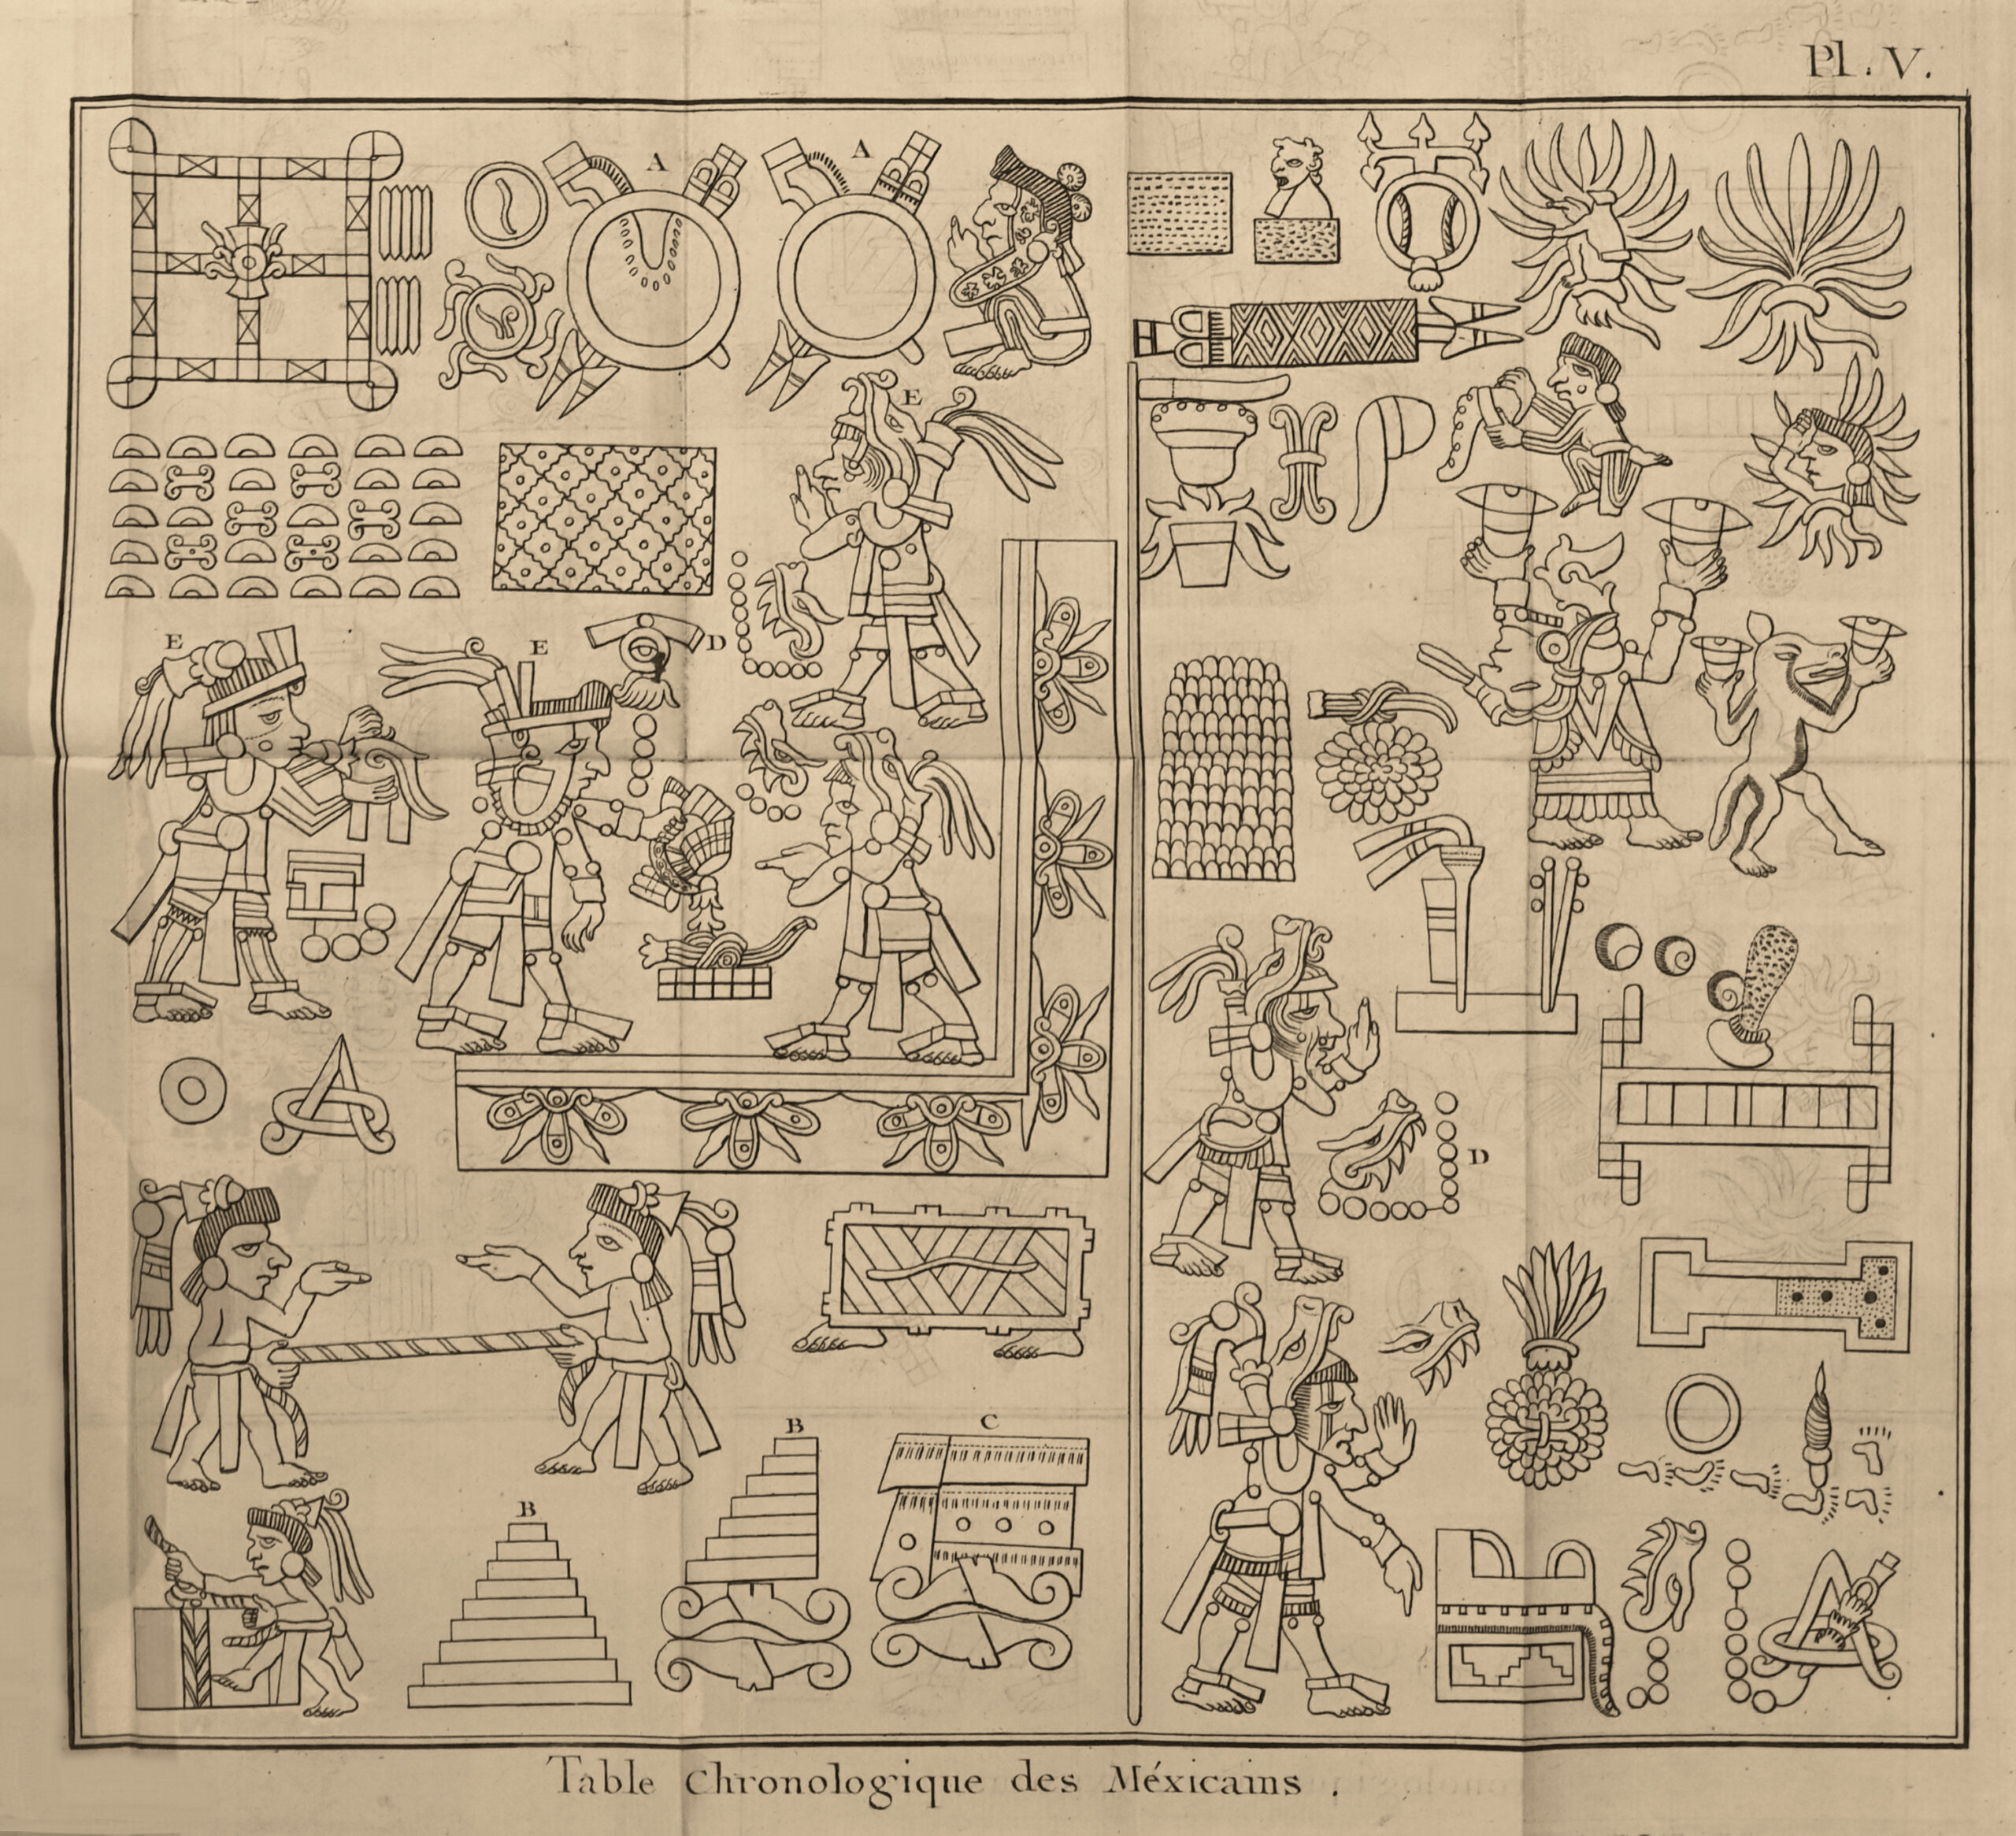 Pl. V.
A
A
E
E
E
D
D
B
C
B
Table Chronologique des Méxicains .